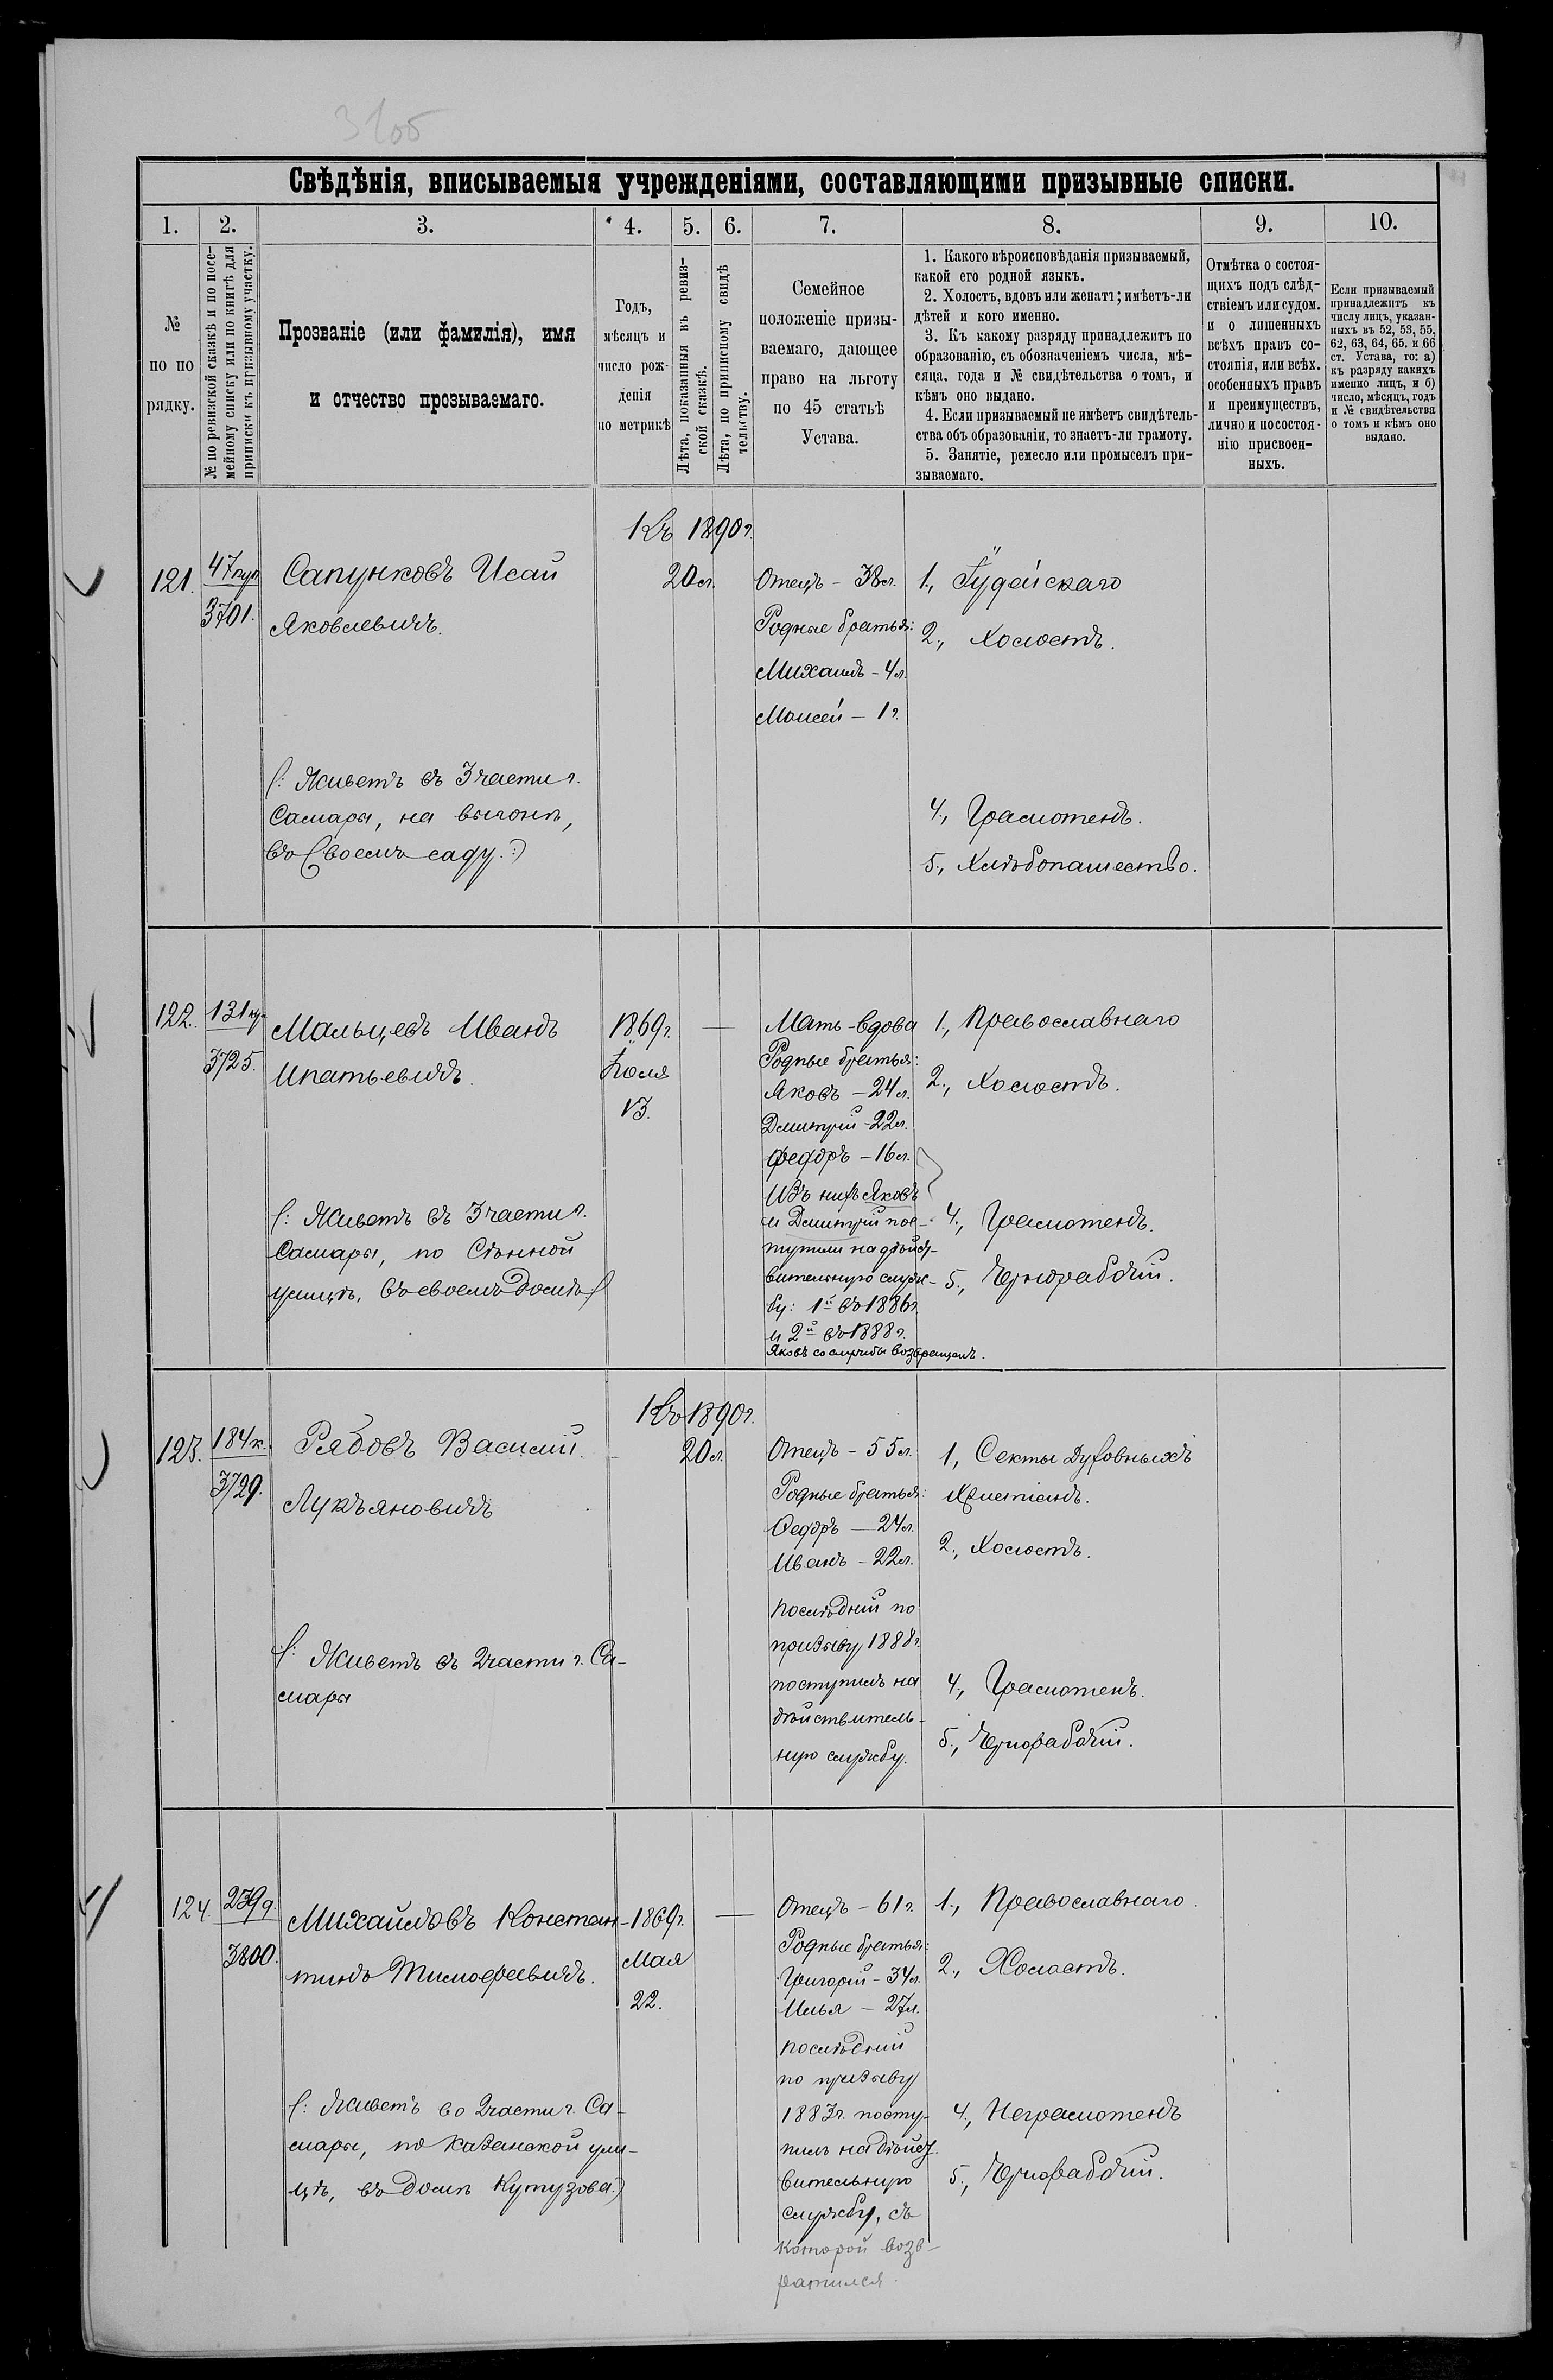 31об
Свѣдѣнія, вписываемыя учрежденіями, составляющими призывные списки.
1. 2. 3. 4. 5. 6. 7. 8. 9. 10.
№
по по
рядку.
№ по ревизской сказкѣ и по посе-
мейному списку или по книгѣ для
приписки къ призывному участку.
Прозваніе (или фамилія), имя
и отчество прозываемаго.
Годъ,
мѣсяцъ и
число рож-
денія
по метрикѣ
Лѣта, показанныя въ ревиз-
ской сказкѣ.
Лѣта, по приписному свидѣ
тельству.
Семейное
положеніе призы-
ваемаго, дающее
право на льготу
по 45 статьѣ
Устава.
1. Какого вѣроисповѣданія призываемый,
какой его родной языкъ.
2. Холостъ, вдовъ или женатъ; имѣетъ-ли
дѣтей и кого именно.
3. Къ какому разряду принадлежитъ по
образованію, съ обозначеніемъ числа, мѣ-
сяца, года и № свидѣтельства о томъ, и
кѣмъ оно выдано.
4. Если призываемый не имѣетъ свидѣтель-
ства объ образованіи, то знаетъ-ли грамоту.
5. Занятіе, ремесло или промыселъ при-
зываемаго.
Отмѣтка о состоя-
щихъ подъ слѣд-
ствіемъ или судом.
и о лишенныхъ
всѣхъ правъ со-
стоянія, или всѣх.
особенныхъ правъ
и преимуществъ,
лично и посостоя-
нію присвоен-
ныхъ.
Если призываемый
принадлежитъ къ
числу лицъ, указан-
ныхъ въ 52, 53, 55,
62, 63, 64, 65, и 66
ст. Устава, то: а)
къ разряду какихъ
именно лицъ, и б)
число, мѣсяцъ, годъ
и № свидѣтельства
о томъ и кѣмъ оно
выдано.
121.
47 куп
3701.
Сапунковъ Исай
Яковлевичъ.
(: Живетъ въ 3 части г.
Самары, на выгонѣ,
въ своемъ саду. :)
Къ 1890 г.
20 л.
Отецъ - 38 л.
Родные братья:
Михаилъ - 4 л.
Моисей - 1 г.
1., Іудейскаго
2., Холостъ.
4., Грамотенъ.
5., Хлѣбопашество.
122.
131 ку
3725.
Мальцевъ Иванъ
Ипатьевичъ.
(: Живетъ въ 3 части г.
Самары, по Сѣнной
улицѣ, въ своемъ домѣ :)
1869 г.
Іюля
13.
—
Мать - вдова
Родные братья:
Яковъ - 24 л.
Дмитрій - 22 л.
Федоръ - 16 л.
Изъ нихъ Яковъ
и Дмитрій пос-
тупили на дѣйст-
вительную служ-
бу: 1й въ 1886 г.
и 2й въ 1888 г.
Яковъ со службы возвращенъ.
1., Православнаго
2., Холостъ.
4., Грамотенъ.
5., Чернорабочій.
123.
184 к.
3729.
Рябовъ Василій
Лукъяновичъ
(: Живетъ въ 2 части г. Са-
мары
Къ 1890 г.
20 л.
Отецъ - 55 л.
Родные братья:
Ѳедоръ - 24 л.
Иванъ - 22 л.
Послѣдній по
призыву 1888 г.
поступилъ на
дѣйствитель-
ную службу.
1., Секты Духовныхъ
Христіанъ.
2., Холостъ.
4., Грамотенъ.
5., Чернорабочій.
124.
3800.
Михайловъ Констан-
тинъ Тимофеевичъ.
(: Живетъ во 2 части г. Са-
мары, по Казанской ули-
цѣ, въ домѣ Кутузова :)
1869 г.
Мая
22.
—
Отецъ - 61 г.
Родные братья:
Григорій - 34 л.
Илья - 27 л.
Послѣдній
по призыву
1883 г. посту-
пилъ на дѣйст-
вительную
службу, съ
которой возв-
ратился.
1., Православнаго.
2., Холостъ.
4., Неграмотенъ
5., Чернорабочій.